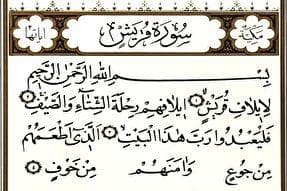 آياتها سورة قريش مكية
بسم الله الرحمن الرحيم
لإيلاف قريش ۝ إيلافهم رحلة الشتاء والصيف ۝
فليعبدوا رب هذا البيت ۝ الذي أطعمهم
من جوع وآمنهم من خوف ۝